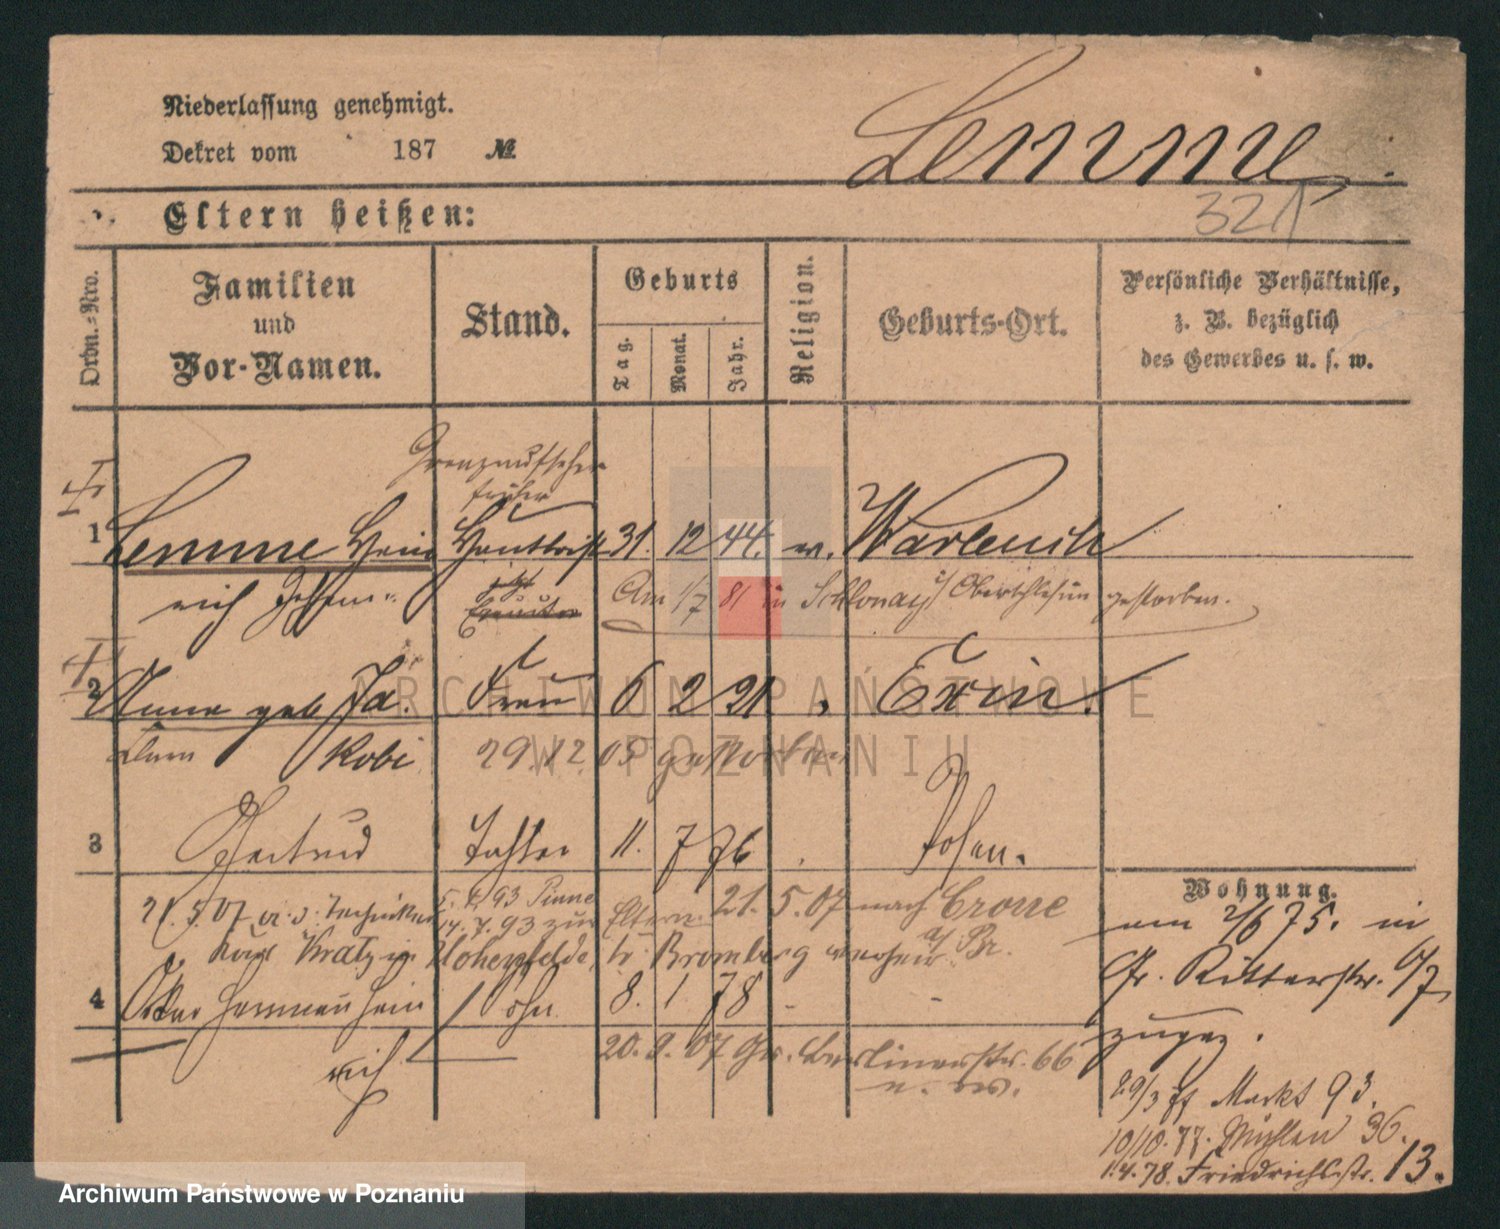 Niederlassung genehmigt.
Lemme
Dekret vom 187 №
321
Eltern heißen:
Ordn.-Nro.
Familien und Vor-Namen.
Stand.
Geburts
Tag.
Monat.
Jahr.
Religion.
Geburts-Ort.
Persönliche Verhältnisse,
z. B. bezüglich
des Gewerbes u. s. w.
Grenzaufseher
früher
1 Lemme Hein 31. 12 44.
rich
Am 1/7 81 in Oberschlesien gestorben.
2 Anna geb Ja Frau 6 2 21 Exin.
kobi 29. 12. 05 gestorben
3 Gertrud Tochter 11. 7 76 Posen.
Wohnung.
21. 5. 07 Techniker 93 Pinne Eltern 21. 5. 07 nach Crone
14. 7. 93 zur
Karl Kratz in Hohenfelde, Kr Bromberg a/ Br.
am 2/6 75. in
Gr. Ritterstr. 6/7
zugez.
4 Oskar Herman Hein Sohn 8. 1 78 -
rich
20. 9. 07 Gr. Berlinerstr. 66
29/3 77 Markt 93.
10/10. 77. Mühlen 36.
1.4.78. Friedrichsstr. 13.
ARCHIWUM PAŃSTWOWE
W POZNANIU
Archiwum Państwowe w Poznaniu